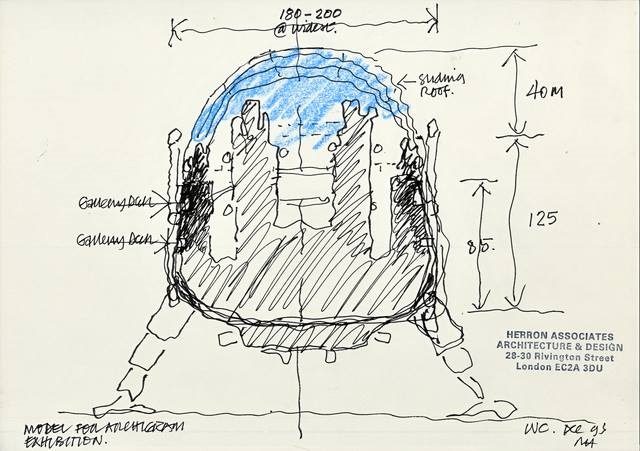 180-200
@ widest.
sliding
ROOF.
40M
Gallery Deck
Gallery Deck
125
85.
HERRON ASSOCIATES
ARCHITECTURE & DESIGN
28-30 Rivington Street
London EC2A 3DU
MODEL FOR ARCHIGRAM
EXHIBITION.
WC. Dec 93